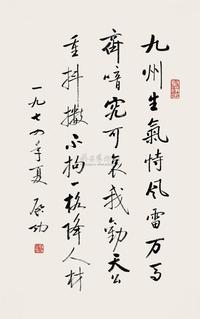 九州生氣恃風雷万馬
齊喑究可哀我勸天公
重抖擻不拘一格降人材
一九七四年夏 啟功